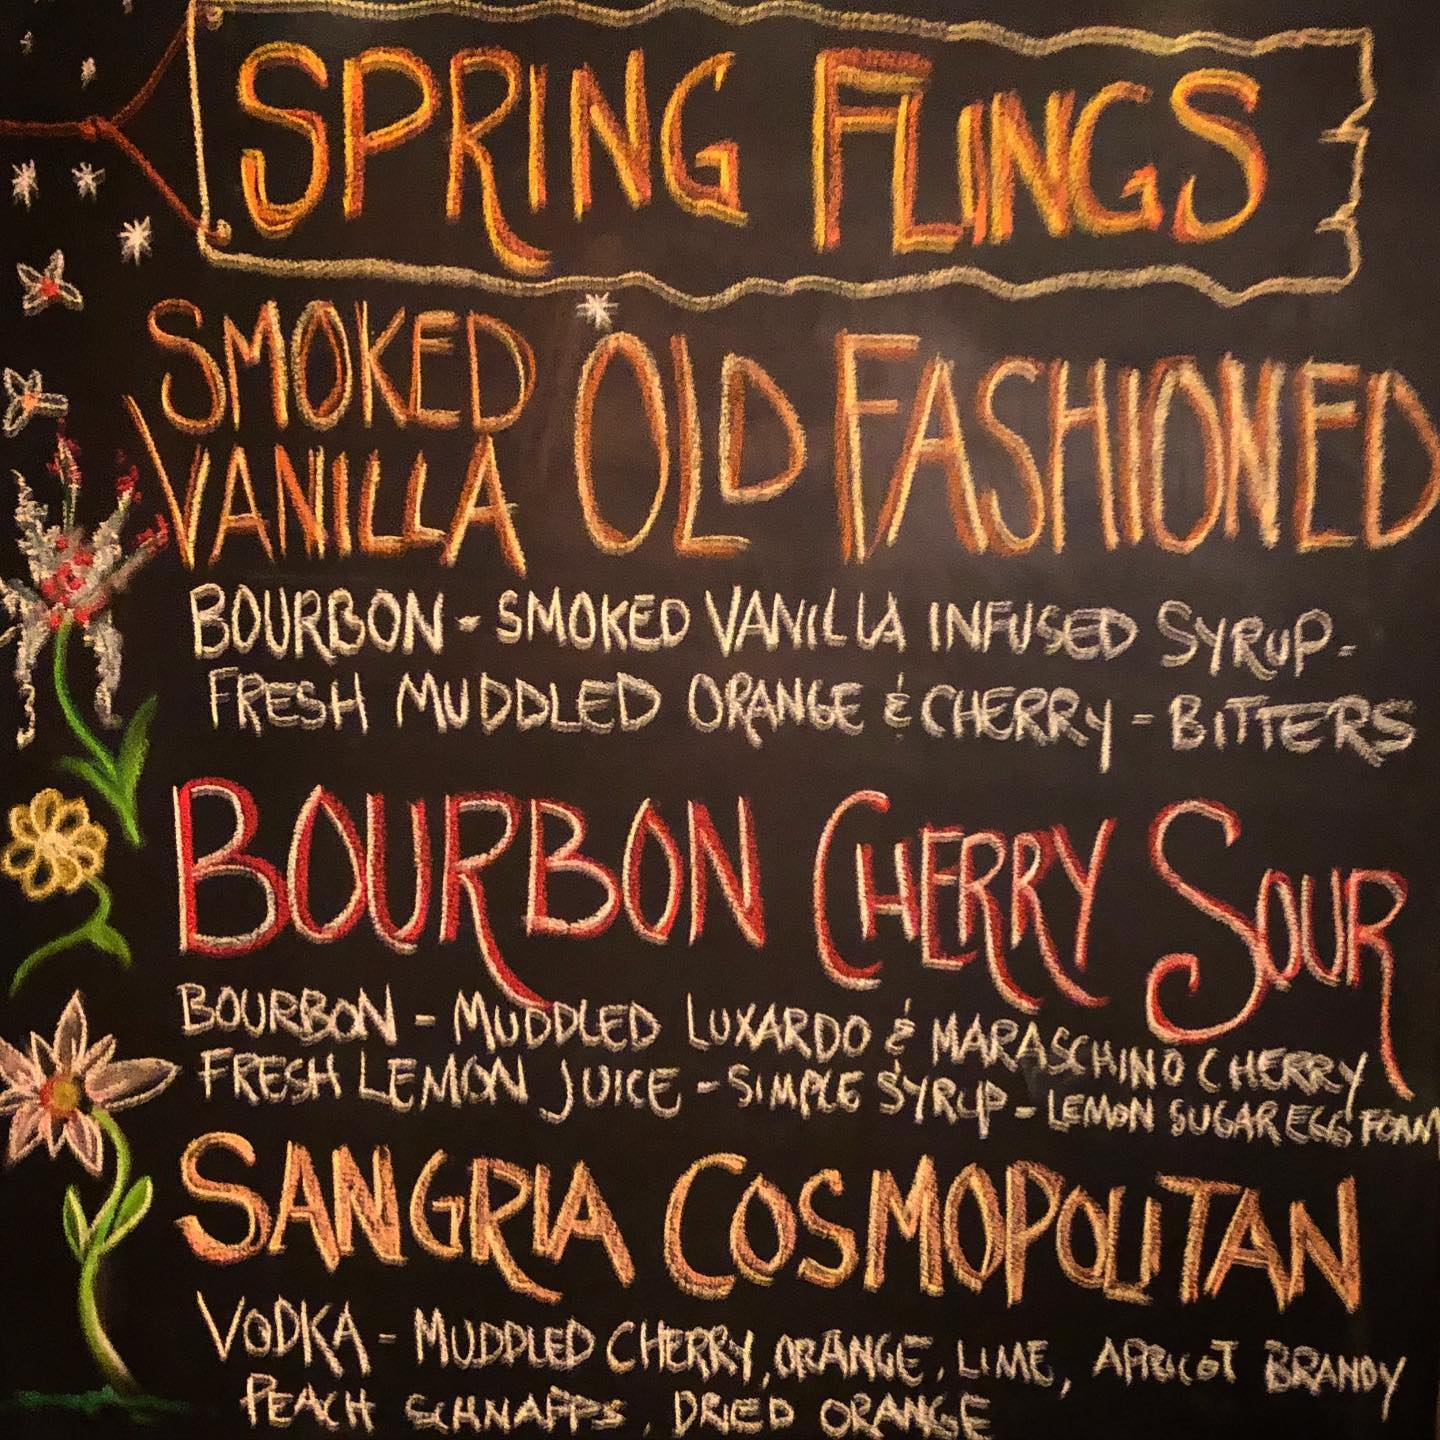 SPRING FLINGS
SMOKED VANILLA OLD FASHIONED
BOURBON - SMOKED VANILLA INFUSED SYRUP -
FRESH MUDDLED ORANGE & CHERRY - BITTERS
BOURBON CHERRY SOUR
BOURBON - MUDDLED LUXARDO & MARASCHINO CHERRY
FRESH LEMON JUICE - SIMPLE SYRUP - LEMON SUGAR EGG FOAM
SANGRIA COSMOPOLITAN
VODKA - MUDDLED CHERRY, ORANGE, LIME, APRICOT BRANDY
PEACH SCHNAPPS, DRIED ORANGE